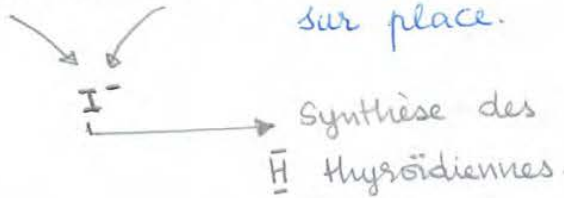 sur place.
I⁻
Synthèse des
H̅ thyroïdiennes.